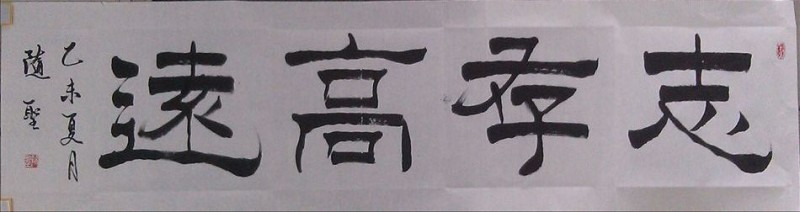 志存高遠
乙未夏月
隨聖